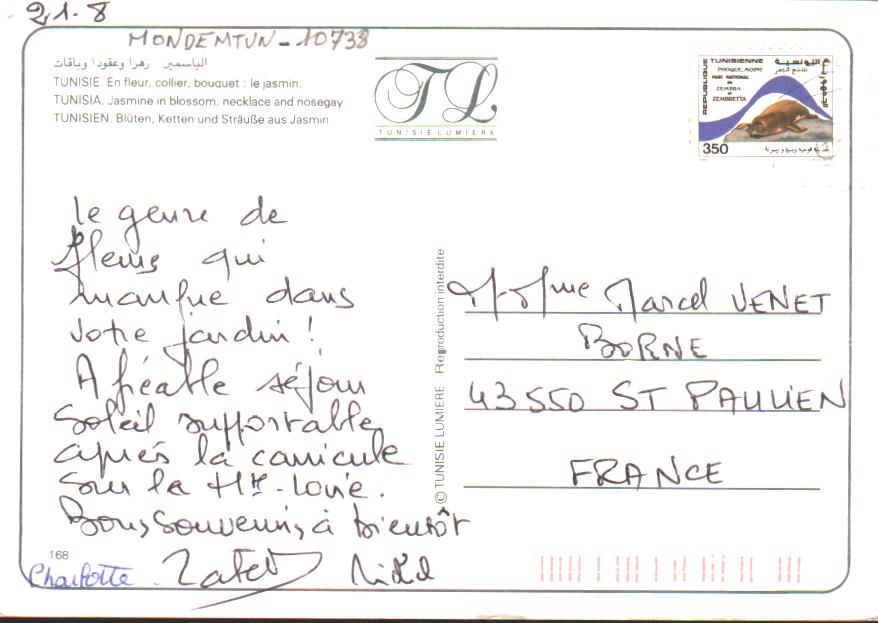 21.8
MONDEMTUN-10738
الياسمين زهرا وعقودا وباقات
TUNISIE. En fleur, collier, bouquet : le jasmin.
TUNISIA. Jasmine in blossom, necklace and nosegay
TUNISIEN. Blüten, Ketten und Sträuße aus Jasmin.
TL
TUNISIE LUMIERE
REPUBLIQUE TUNISIENNE
PHOQUE MOINE
PARC NATIONAL
de
ZEMBRA
et
ZEMBRETTA
350
le genre de
fleurs qui
manque dans
votre jardin !
Agréable séjour
Soleil supportable,
après la canicule
sur la Hte-Loire.
Bons souvenirs, à bientôt
168
Charlotte
© TUNISIE LUMIERE Reproduction interdite
M. Mme Marcel VENET
BORNE
43550 ST PAULIEN
FRANCE